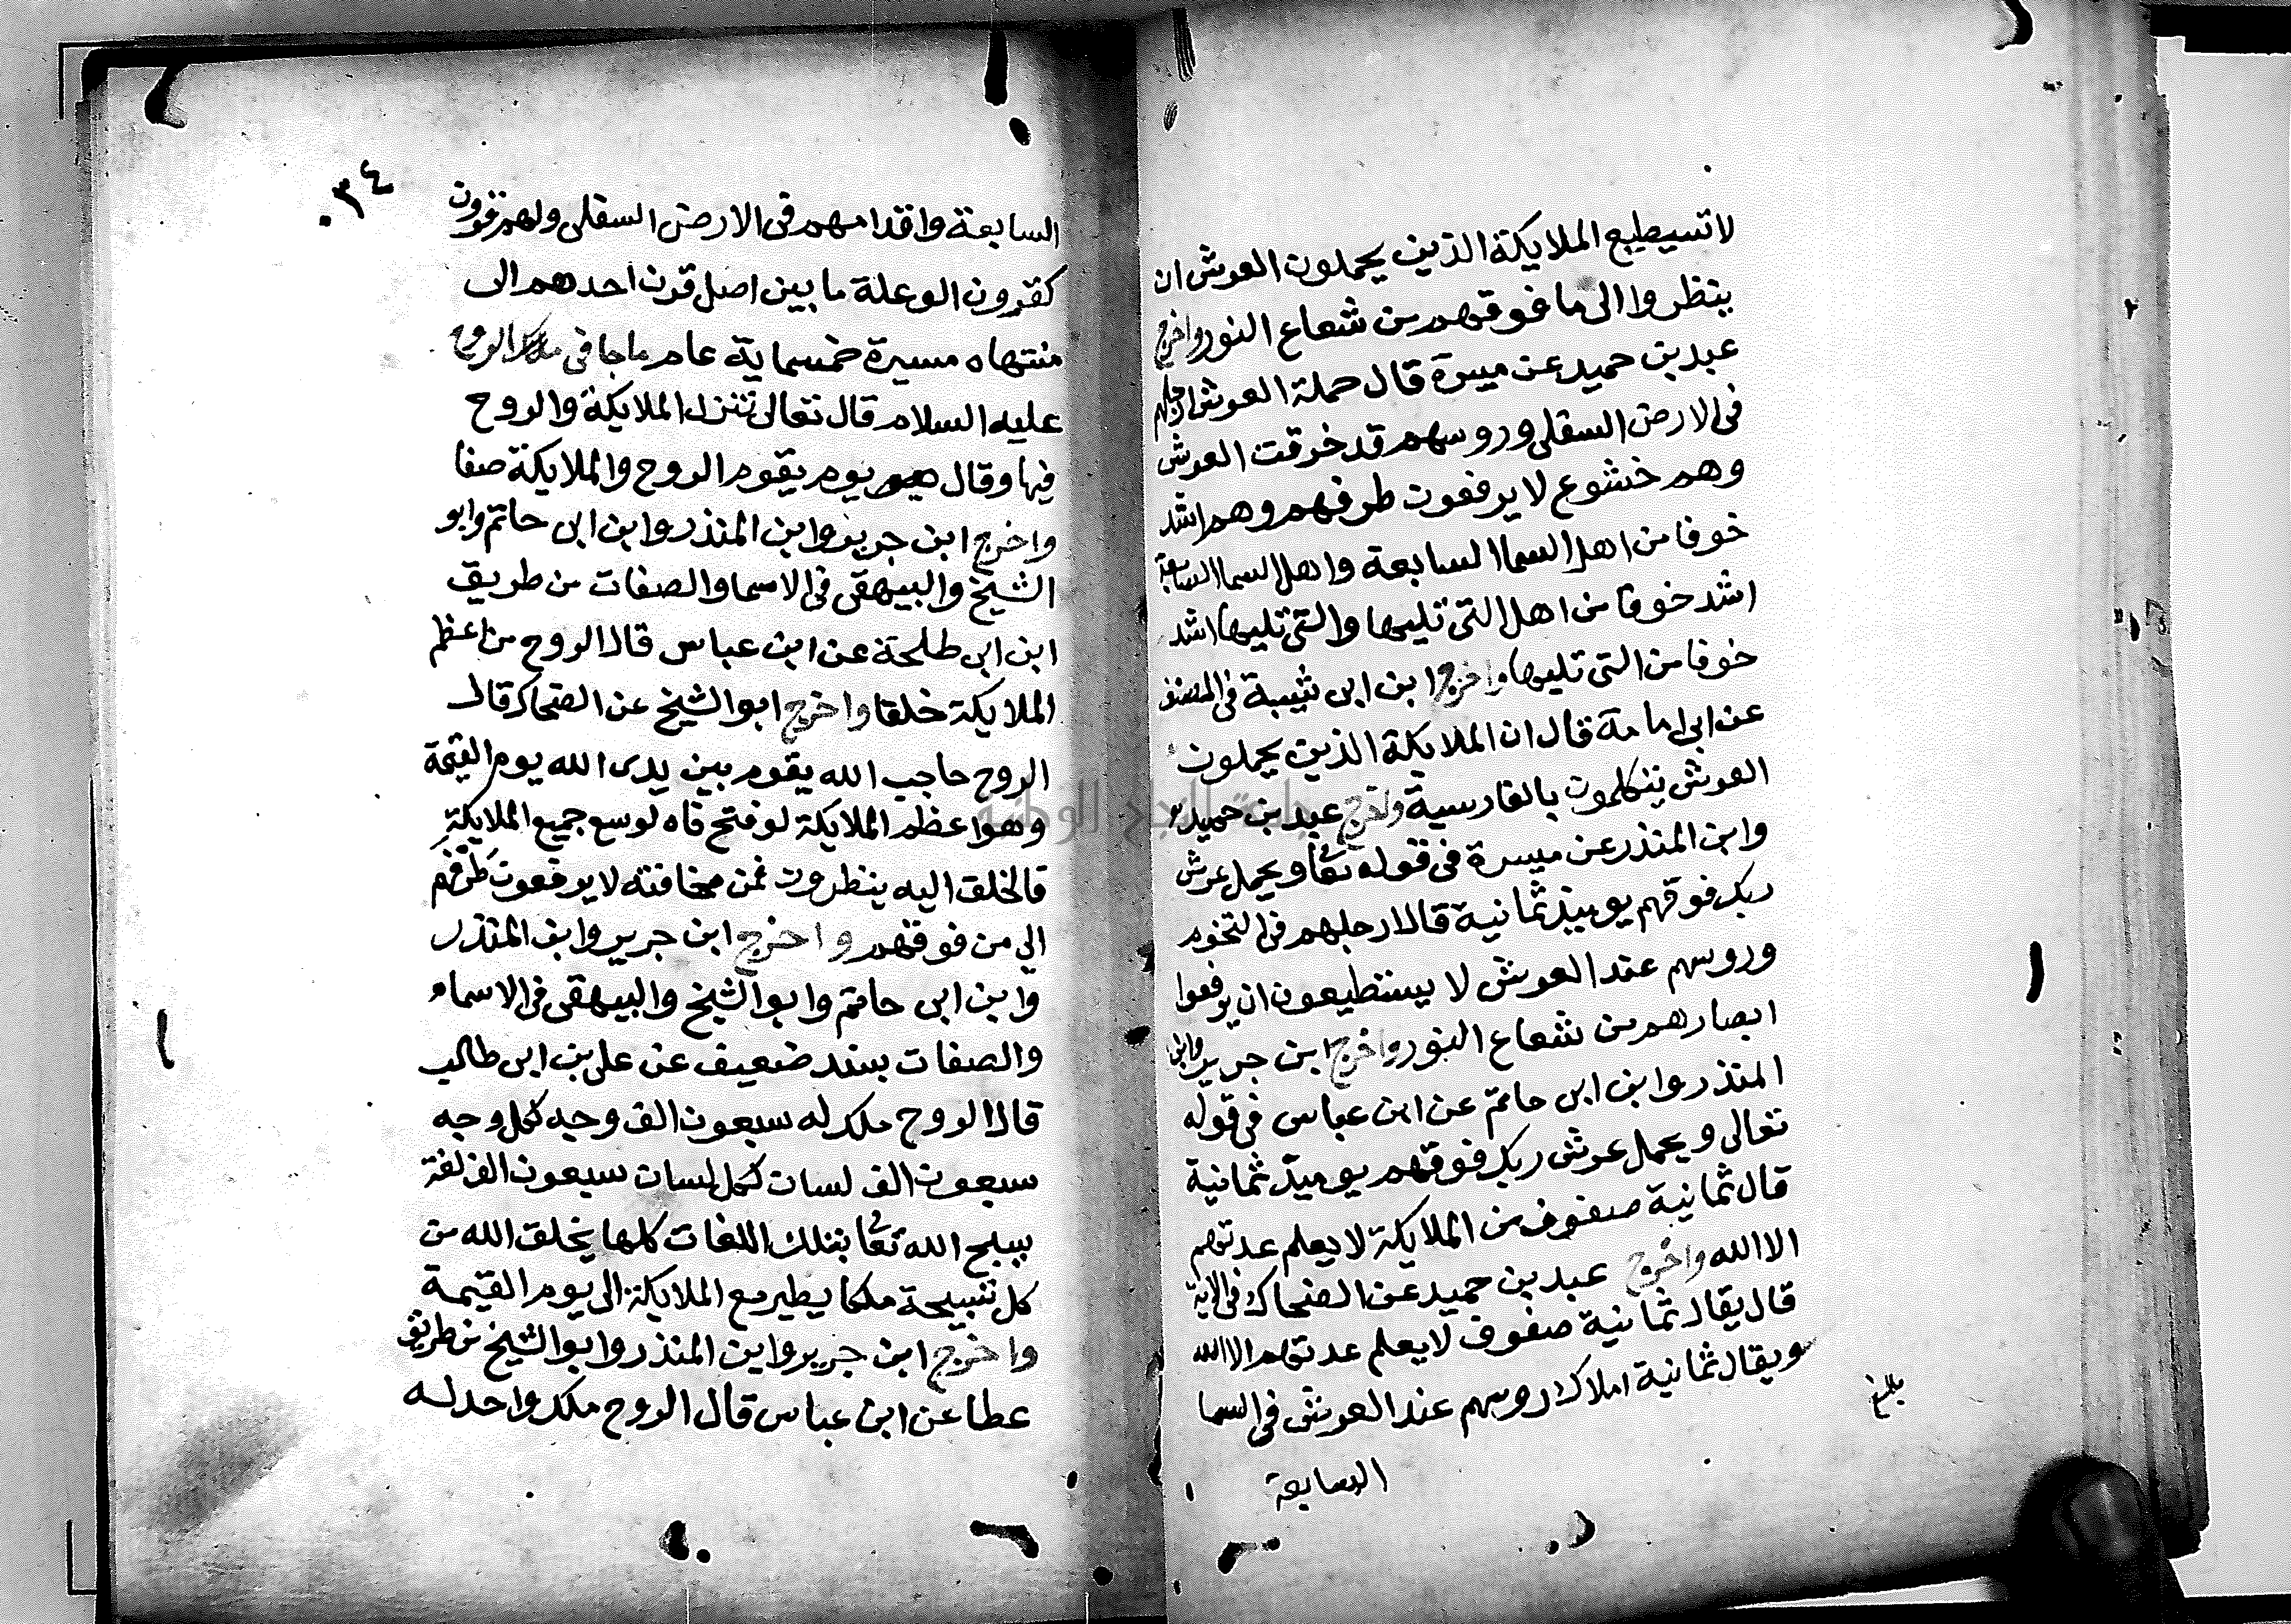 لا تسيطيع الملايكة الذين يحملون العرش ان
ينظروا الى ما فوقهم من شعاع النور واخرج
عبد بن حميد عن ميسرة قال حملة العرش ارجلهم
في الارض السفلى وروسهم قد خرقت العرش
وهم خشوع لا يرفعون طرفهم وهم اشد
خوفا من اهل السما السابعة واهل السما السابعة
اشد خوفا من اهل التي تليها والتي تليها اشد
خوفا من التي تليها واخرج ابن ابي شيبة في المصنف
عن ابي امامة قال ان الملايكة الذين يحملون
العرش يتكلمون بالفارسية واخرج عبد بن حميد
وابن المنذر عن ميسرة في قوله تعا ويحمل عرش
ربك فوقهم يوميذ ثمانية قال ارجلهم في التخوم
وروسهم عند العرش لا يستطيعون ان يرفعوا
ابصارهم من شعاع النور واخرج ابن جرير وابن
المنذر وابن ابي حاتم عن ابن عباس في قوله
تعالى ويحمل عرش ربك فوقهم يوميذ ثمانية
قال ثمانية صفوف من الملايكة لا يعلم عدتهم
الا الله واخرج عبد بن حميد عن الضحاك في الاية
قال يقال ثمانية صفوف لا يعلم عدتهم الا الله
ويقال ثمانية املاك روسهم عند العرش في السما
السابعة
بلغ
٠٣٤
السابعة واقدامهم في الارض السفلى ولهم قرون
كقرون الوعلة ما بين اصل قرن احدهم الى
منتهاه مسيرة خمسماية عام ما جا في ملك الروح
عليه السلام قال تعالى تنزل الملايكة والروح
فيها وقال يوم يقوم الروح والملايكة صفا
واخرج ابن جرير وابن المنذر وابن ابي حاتم وابو
الشيخ والبيهقي في الاسما والصفات من طريق
ابن ابي طلحة عن ابن عباس قال الروح من اعظم
الملايكة خلقا واخرج ابو الشيخ عن الضحاك قال
الروح حاجب الله يقوم بين يدى الله يوم القيمة
وهو اعظم الملايكة لو فتح فاه لوسع جميع الملايكة
فالخلق اليه ينظرون فمن مخافته لا يرفعون طرفهم
الى من فوقهم واخرج ابن جرير وابن المنذر
وابن ابي حاتم وابو الشيخ والبيهقي في الاسماء
والصفات بسند ضعيف عن علي بن ابي طالب
قال الروح ملك له سبعون الف وجه لكل وجه
سبعون الف لسان لكل لسان سبعون الف لغة
يسبح الله تعا بتلك اللغات كلها يخلق الله من
كل تسبيحة ملكا يطير مع الملايكة الى يوم القيمة
واخرج ابن جرير وابن المنذر وابو الشيخ من طريق
عطا عن ابن عباس قال الروح ملك واحد له
جامعة النجاح الوطنية